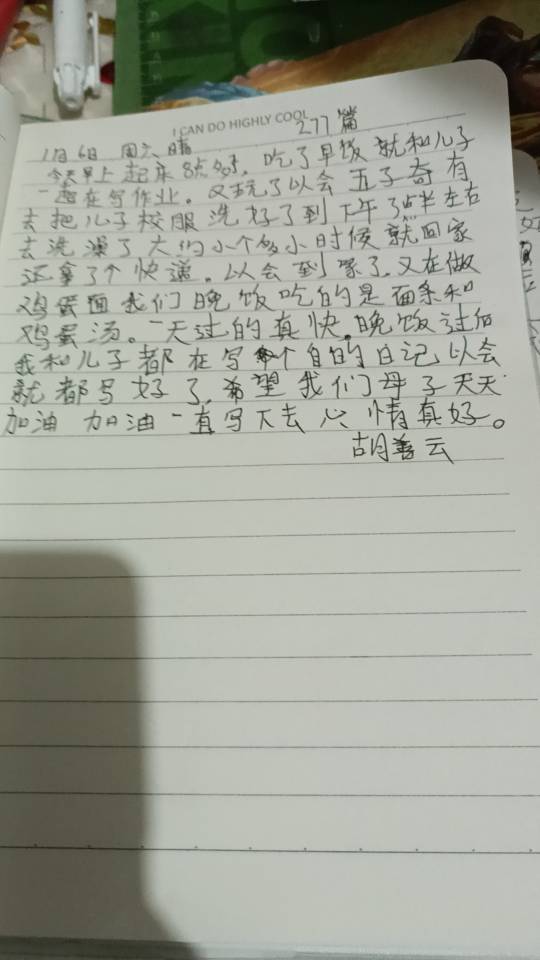 I CAN DO HIGHLY COOL
277篇
1月6日 周六 晴
今天早上起床8点多, 吃了早饭就和儿子
一起在写作业。又玩了以会五子奇有
去把儿子校服洗好了到下午3点半左右
去洗澡了大约小个多小时候就回家
还拿了个快递。以会到家了又在做
鸡蛋面我们晚饭吃的是面条和
鸡蛋汤。一天过的真快。晚饭过后
我和儿子都在写个自的日记以会
就都写好了。希望我们母子天天
加油 加油一直写下去心情真好。
胡善云